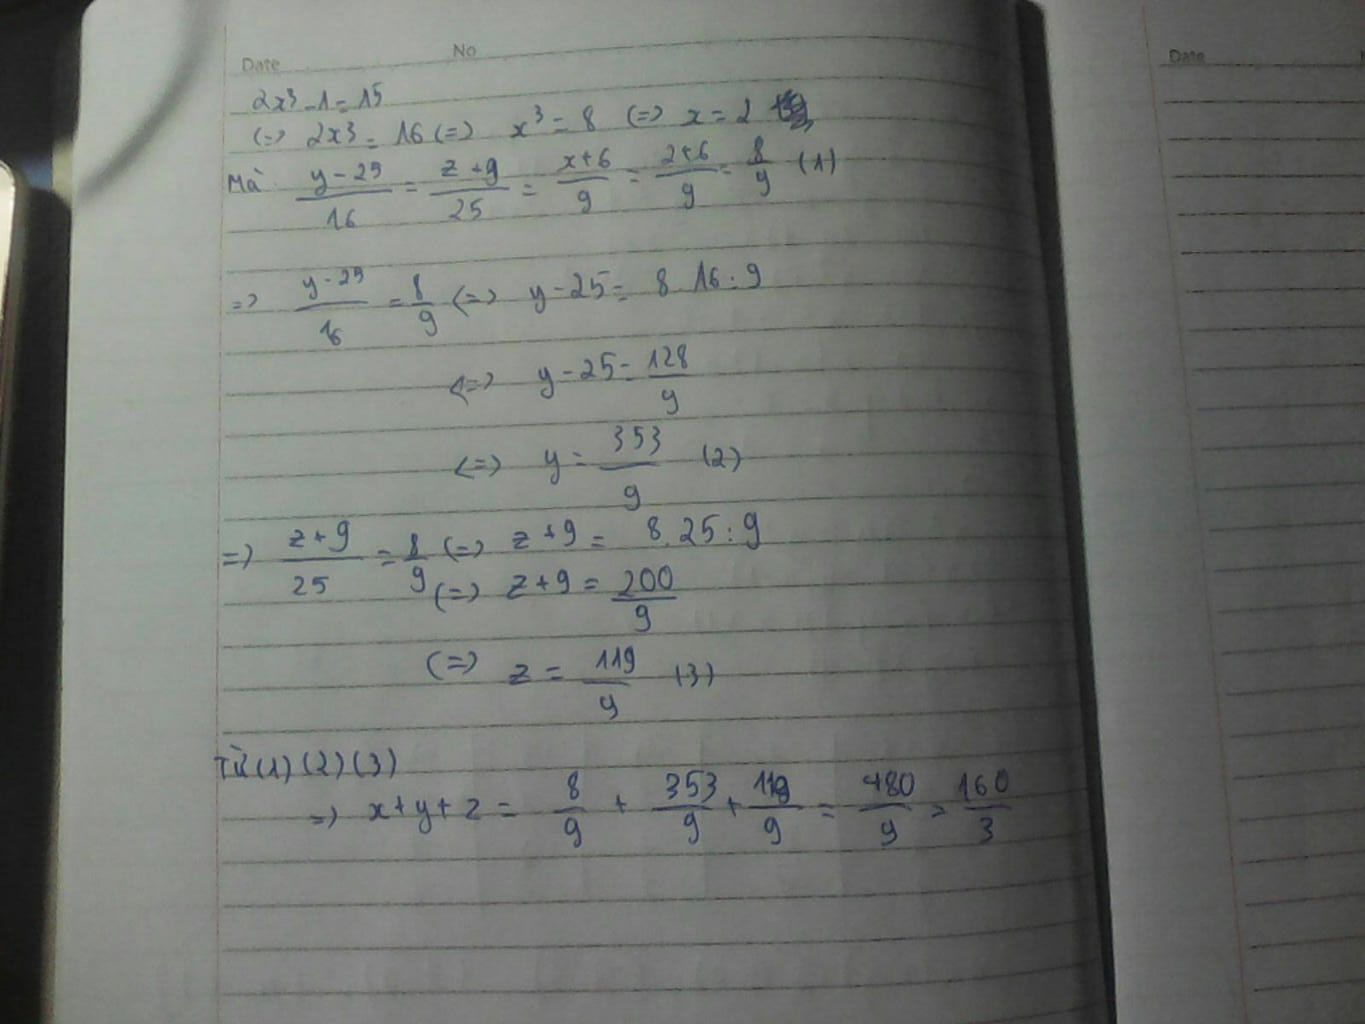 Date No
2x³ - 1 = 15
(=) 2x³ = 16 (=) x³ = 8 (=) x = 2
Mà y - 25 / 16 = z + 9 / 25 = x + 6 / 9 = 2 + 6 / 9 = 8 / 9 (1)
=) y - 25 / 16 = 8 / 9 (=) y - 25 = 8 16 : 9
(=) y - 25 = 128 / 9
(=) y = 353 / 9 (2)
=) z + 9 / 25 = 8 / 9 (=) z + 9 = 8.25 : 9
(=) z + 9 = 200 / 9
(=) z = 119 / 9 (3)
Từ (1) (2) (3)
=) x + y + z = 8 / 9 + 353 / 9 + 119 / 9 = 480 / 9 = 160 / 3
Date